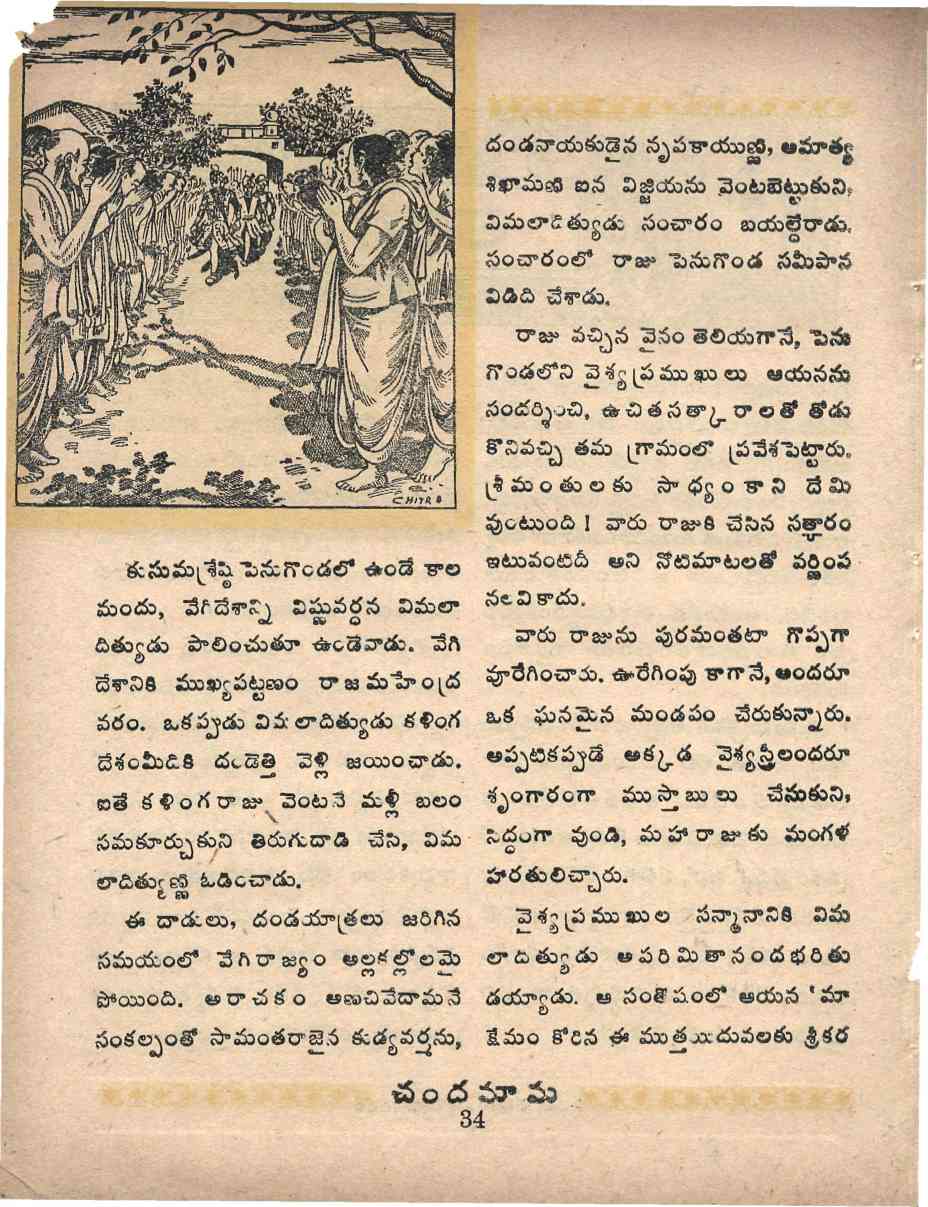 CHITRA
కుసుమశ్రేష్ఠి పెనుగొండలో ఉండే కాల
మందు, వేగిదేశాన్ని విష్ణువర్ధన విమలా
దిత్యుడు పాలించుతూ ఉండేవాడు. వేగి
దేశానికి ముఖ్యపట్టణం రాజమహేంద్ర
వరం. ఒకప్పుడు విమలాదిత్యుడు కళింగ
దేశంమీదికి దండెత్తి వెళ్లి జయించాడు.
ఐతే కళింగరాజు వెంటనే మళ్లీ బలం
సమకూర్చుకుని తిరుగుదాడి చేసి, విమ
లాదిత్యుణ్ణి ఓడించాడు.
ఈ దాడులు, దండయాత్రలు జరిగిన
సమయంలో వేగిరాజ్యం అల్లకల్లోలమై
పోయింది. అరాచకం అణచివేదామనే
సంకల్పంతో సామంతరాజైన కుడ్యవర్మను,
దండనాయకుడైన నృపకాయుణ్ణి, అమాత్య
శిఖామణి ఐన విజ్జియను వెంటబెట్టుకుని,
విమలాదిత్యుడు సంచారం బయల్దేరాడు.
సంచారంలో రాజు పెనుగొండ సమీపాన
విడిది చేశాడు.
రాజు వచ్చిన వైనం తెలియగానే, పెను
గొండలోని వైశ్యప్రముఖులు ఆయనను
సందర్శించి, ఉచితసత్కారాలతో తోడు
కొనివచ్చి తమ గ్రామంలో ప్రవేశపెట్టారు.
శ్రీమంతులకు సాధ్యంకాని దేమి
వుంటుంది! వారు రాజుకి చేసిన సత్కారం
ఇటువంటిదీ అని నోటిమాటలతో వర్ణింప
నలవికాదు.
వారు రాజును పురమంతటా గొప్పగా
వూరేగించారు. ఊరేగింపు కాగానే, అందరూ
ఒక ఘనమైన మండపం చేరుకున్నారు.
అప్పటికప్పుడే అక్కడ వైశ్యస్త్రీలందరూ
శృంగారంగా ముస్తాబులు చేసుకుని,
సిద్ధంగా వుండి, మహారాజుకు మంగళ
హారతులిచ్చారు.
వైశ్యప్రముఖుల సన్మానానికి విమ
లాదిత్యుడు అపరిమితానందభరితు
డయ్యాడు. ఆ సంతోషంలో ఆయన 'మా
క్షేమం కోరిన ఈ ముత్తయిదువలకు శ్రీకర
చందమామ
34